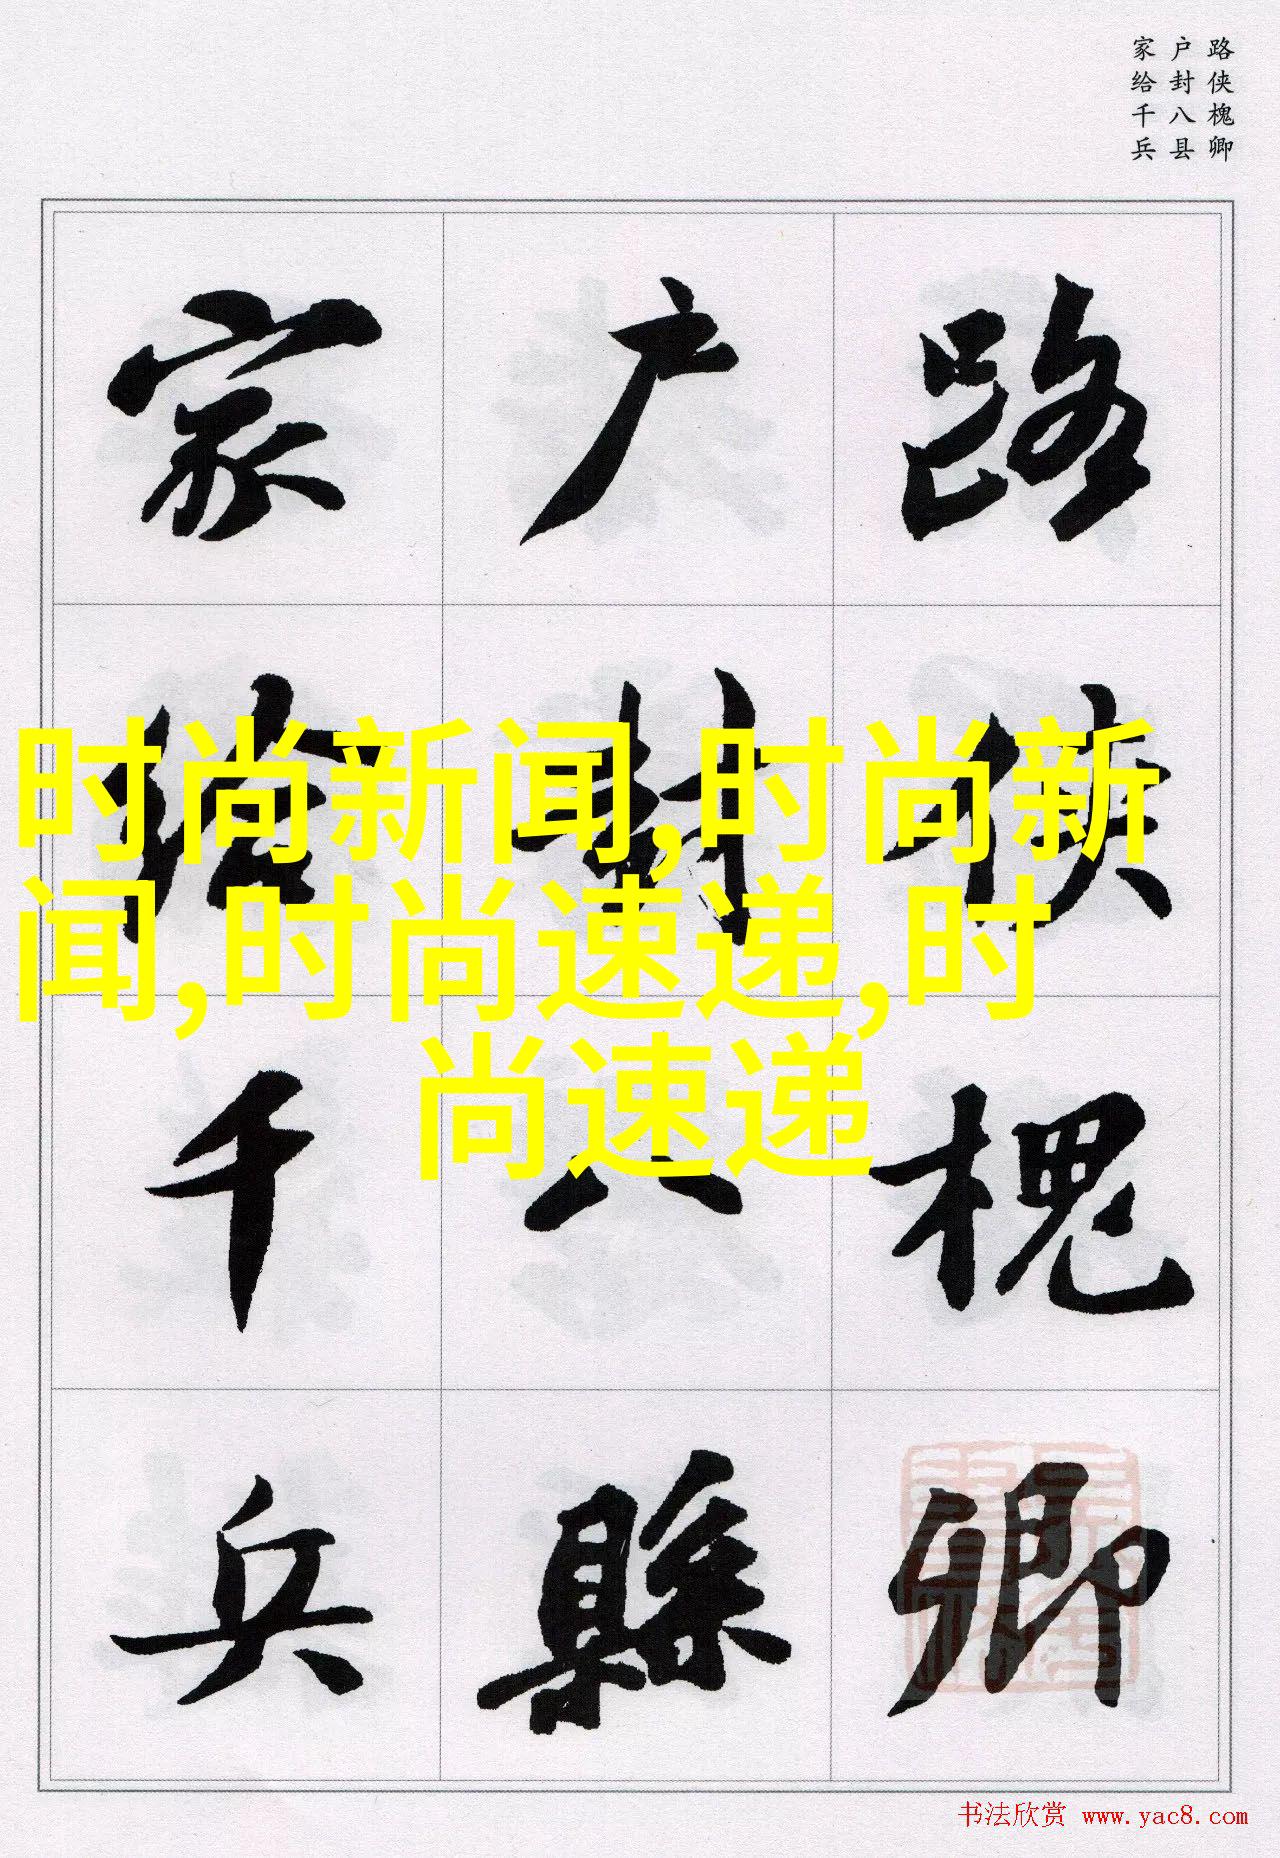 路侠槐卿
户封八县
家给千兵
路侠槐卿
户封八縣
家给千兵
时尚新闻,时尚新
闻,时尚速递,时
尚速递
书法欣赏 www.yac8.com